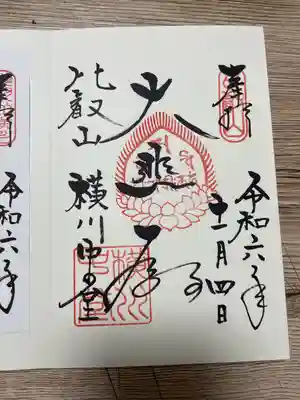 奉拝
令和六年
十一月四日
大悲殿
比叡山
横川中堂
令和六年